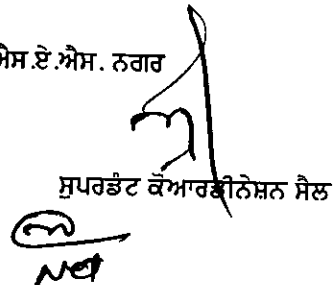 ਐਸ.ਏ.ਐਸ. ਨਗਰ
ਸੁਪਰਡੰਟ ਕੋਆਰਡੀਨੇਸ਼ਨ ਸੈਲ